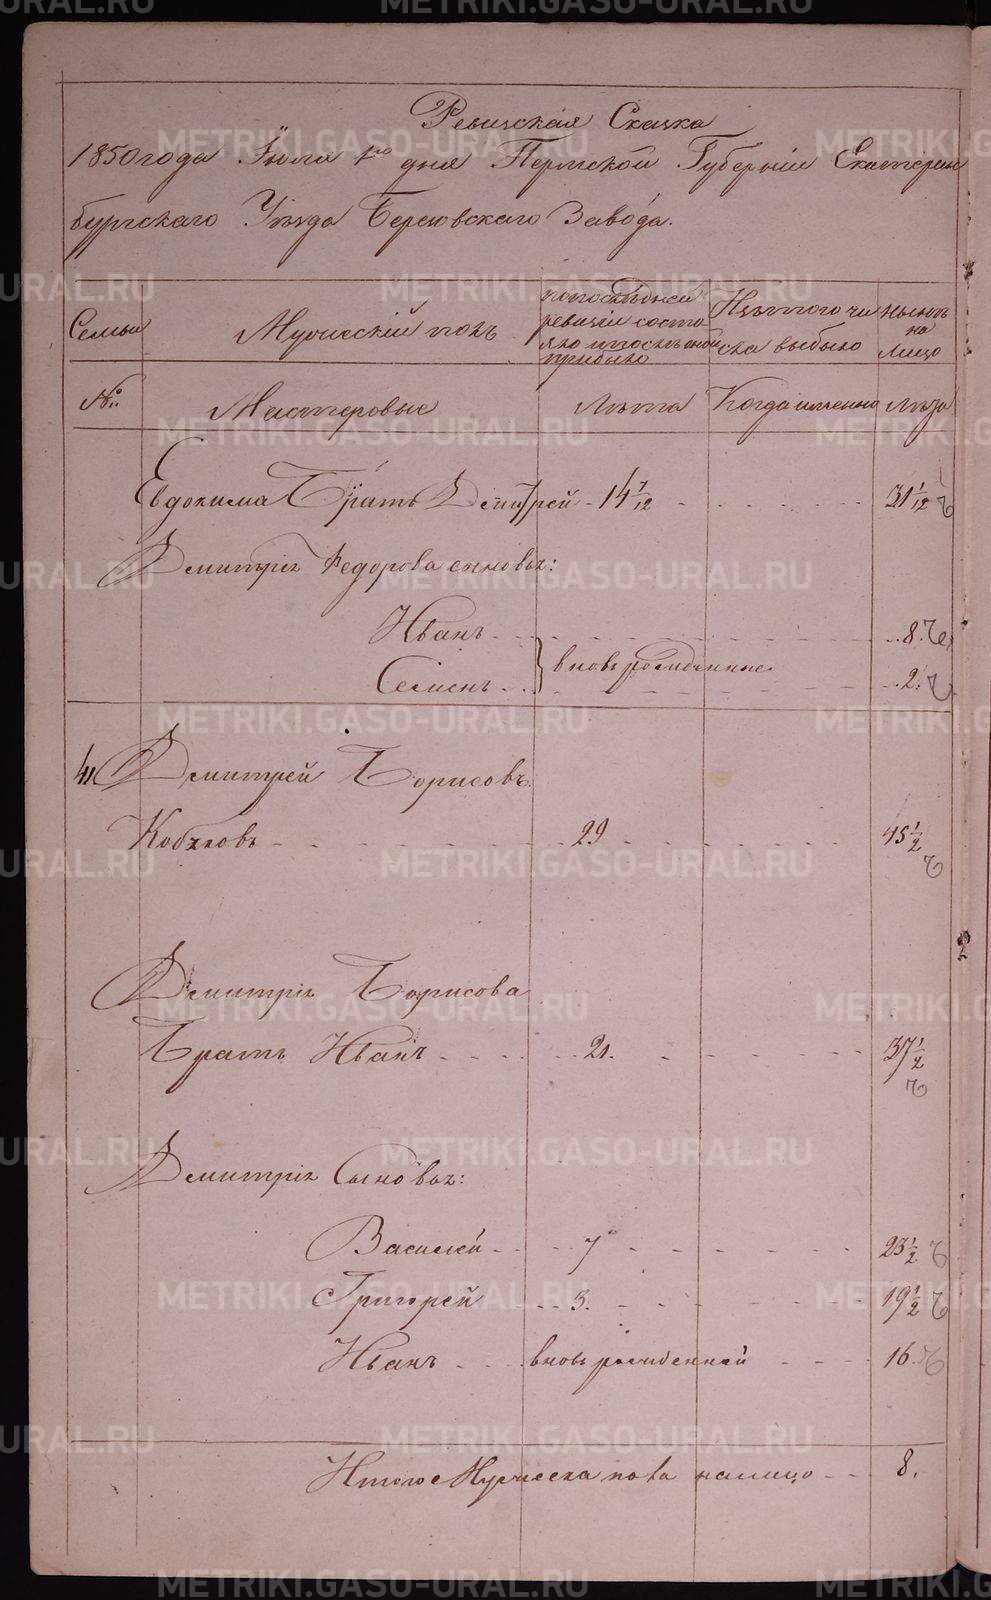 Ревизская Сказка
1850 года Июля 1го дня Пермской Губернiи Екатерин
бургскаго Уѣзда Березовскаго Завода.
Семьи
Мужескiй полъ
по последней
ревизiи состо-
яло и после оной
прибыло
Изътого чи
сла выбыло
нынѣ
на
лицо
№:
Мастеровые
Лѣта
Когда именно
Лѣта
Евдокима Братъ Дмитрей - 14 7/12 31 1/12
Дмитрiя Федорова сыновья:
Иванъ 8.
Семенъ вновь рожденные 2.
41 Дмитрей Борисовъ
Кобяковъ 29 45 1/2
Дмитрiя Борисова
Братъ Иванъ 21. 37 1/2
Дмитрiя Сыновья:
Василей 7 23 1/2
Григорей 3. 19 1/2
Иванъ вновь рожденной 16
Итого Мужеска пола налицо 8.
METRIKI.GASO-URAL.RU